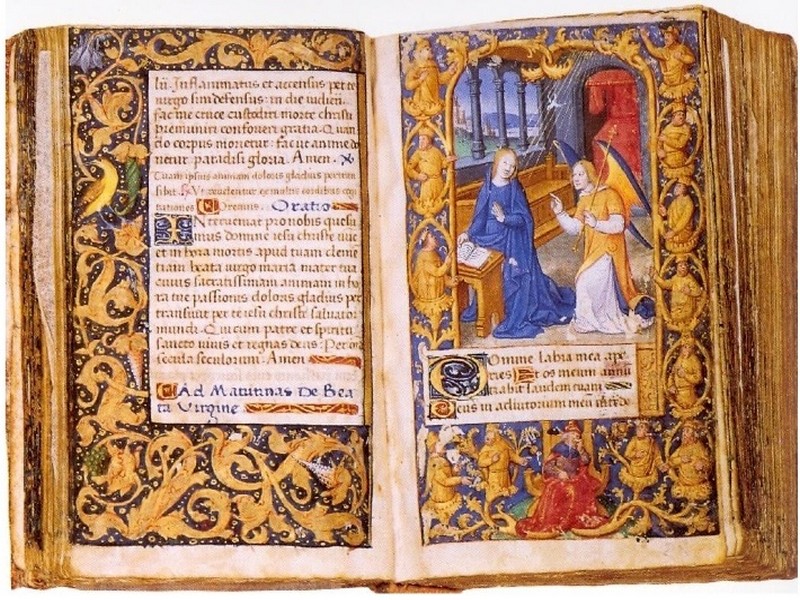 lii. Inflammatus et accensus per te
virgo sim defensus: in die iudicii.
fac me cruce custodiri morte christi
premuniri confoveri gratia. Quan
do corpus morietur: fac ut anime do
netur paradisi gloria. Amen.
Tuam ipsius animam doloris gladius pertran
sibit. Ut revelentur ex multis cordibus cogi
tationes Oremus. Oratio
INterveniat pro nobis quesu
mus domine iesu christe nuc
et in hora mortis apud tuam cleme
tiam beata virgo maria mater tua
cuius sacratissimam animam in ho
ra tue passionis doloris gladius per
transivit per te iesu christe salvator
mundi. Qui cum patre et spiritu
sancto vivis et regnas deus: Per om
secula seculorum. Amen
Ad Matutinas De Bea
ta Virgine
Domine labia mea ape
ries Et os meum annu
tiabit laudem tuam
Deus in adiutorium meu inte de